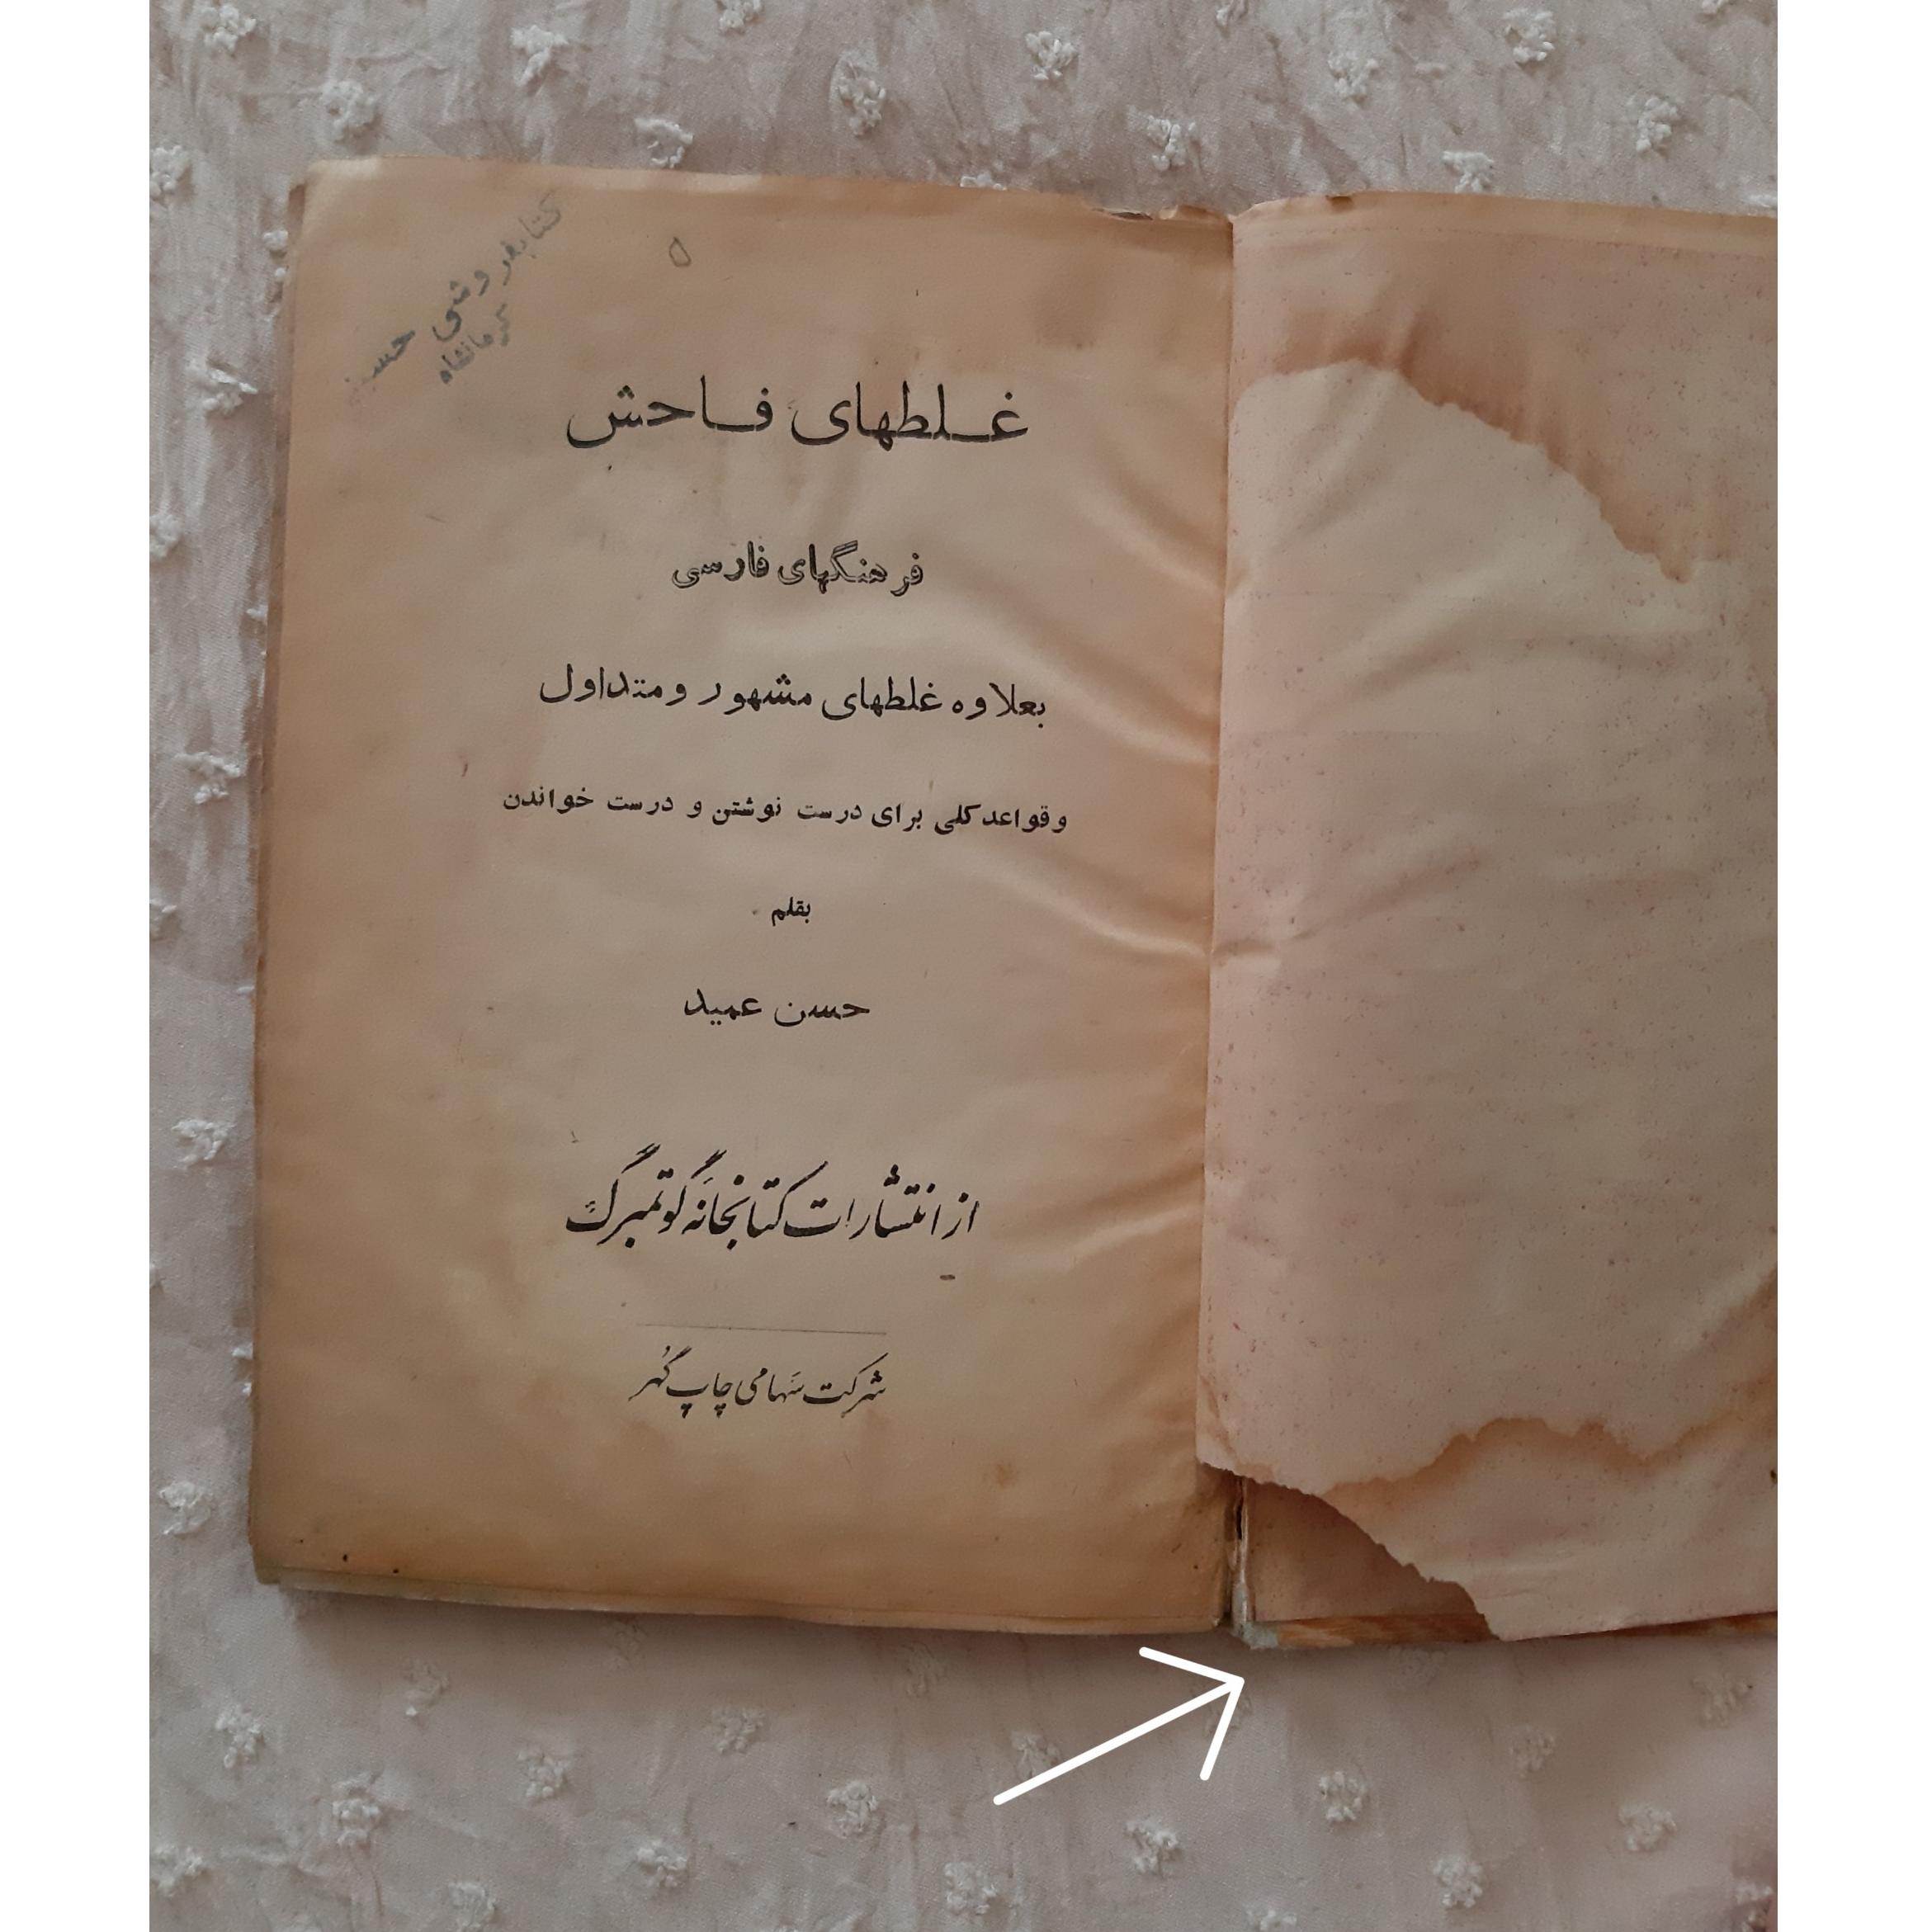 کتابفروشی
کرمانشاه
غلطهای فاحش
فرهنگهای فارسی
بعلاوه غلطهای مشهور و متداول
و قواعد کلی برای درست نوشتن و درست خواندن
بقلم
حسن عمید
از انتشارات کتابخانهٔ گوتمبرگ
شرکت سهامی چاپ گهر